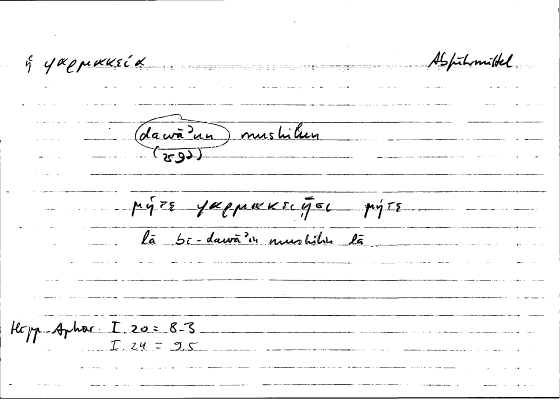 ἡ φαρμακεία Abführmittel
dawāʾun mushilun
μήτε φαρμακείῃσι μήτε
lā bi-dawāʾin mushilin lā
Hipp. Aphor. I 20 = 8.3
I 24 = 9.5